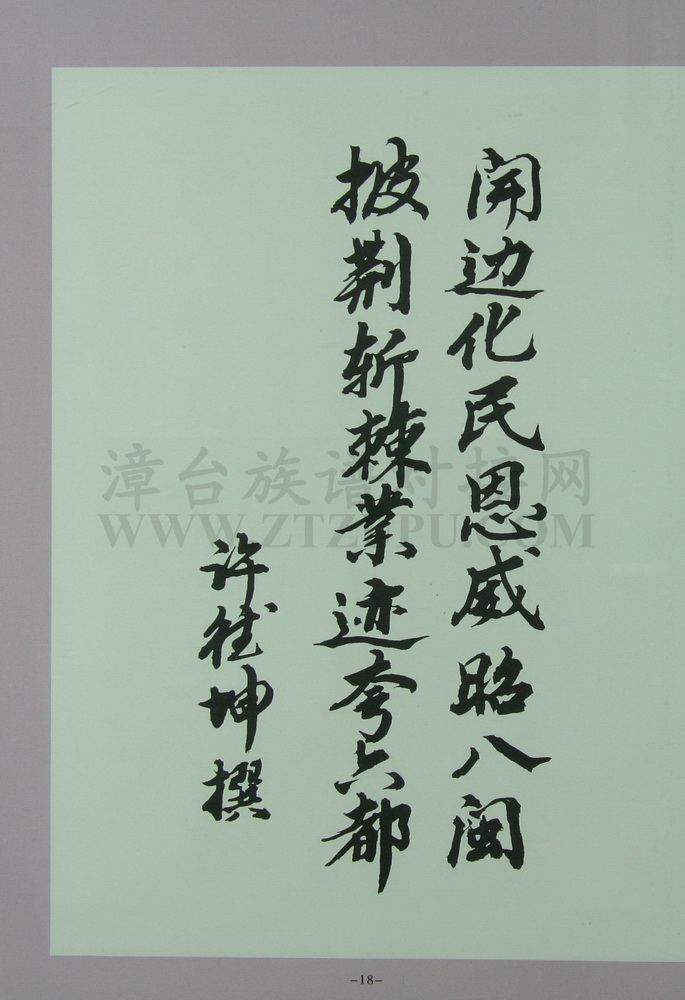 开边化民恩威昭八闽
披荆斩棘業迹夸六都
许徒坤撰
漳台族谱对接网
WWW.ZTZUPU.COM
-18-